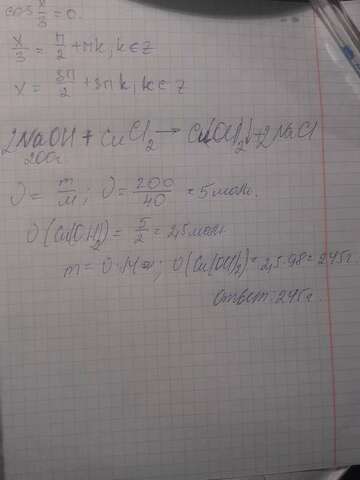 cos x/3 = 0.
x/3 = π/2 + πk, k ∈ Z
x = 3π/2 + 3πk, k ∈ Z
2NaOH + CuCl2 → Cu(OH)2↓ + 2NaCl
200г
ν = m/M; ν = 200/40 = 5 моль.
ν(Cu(OH)2) = 5/2 = 2,5 моль
m = ν·M; ν(Cu(OH)2) = 2,5·98 = 245г.
Ответ: 245г.